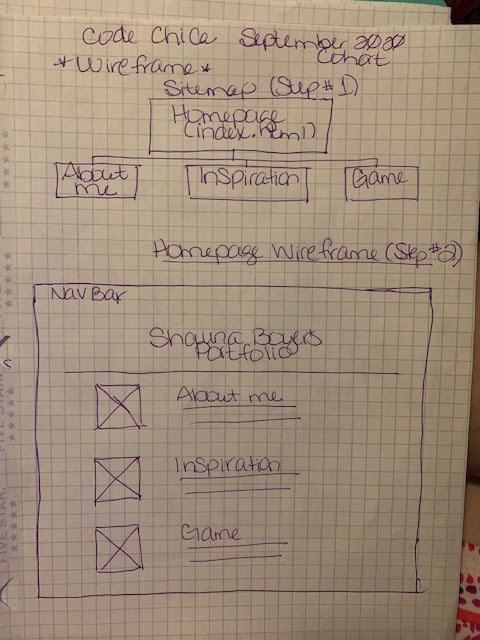 Code Chica September 2020
*Wireframe* Cohort
Sitemap (Step #1)
Homepage
(index.html)
About
me
Inspiration
Game
Homepage Wireframe (Step #2)
NavBar
Shauna Boyers
Portfolio
About me
Inspiration
Game
FIVE STAR.
FIVE STAR.